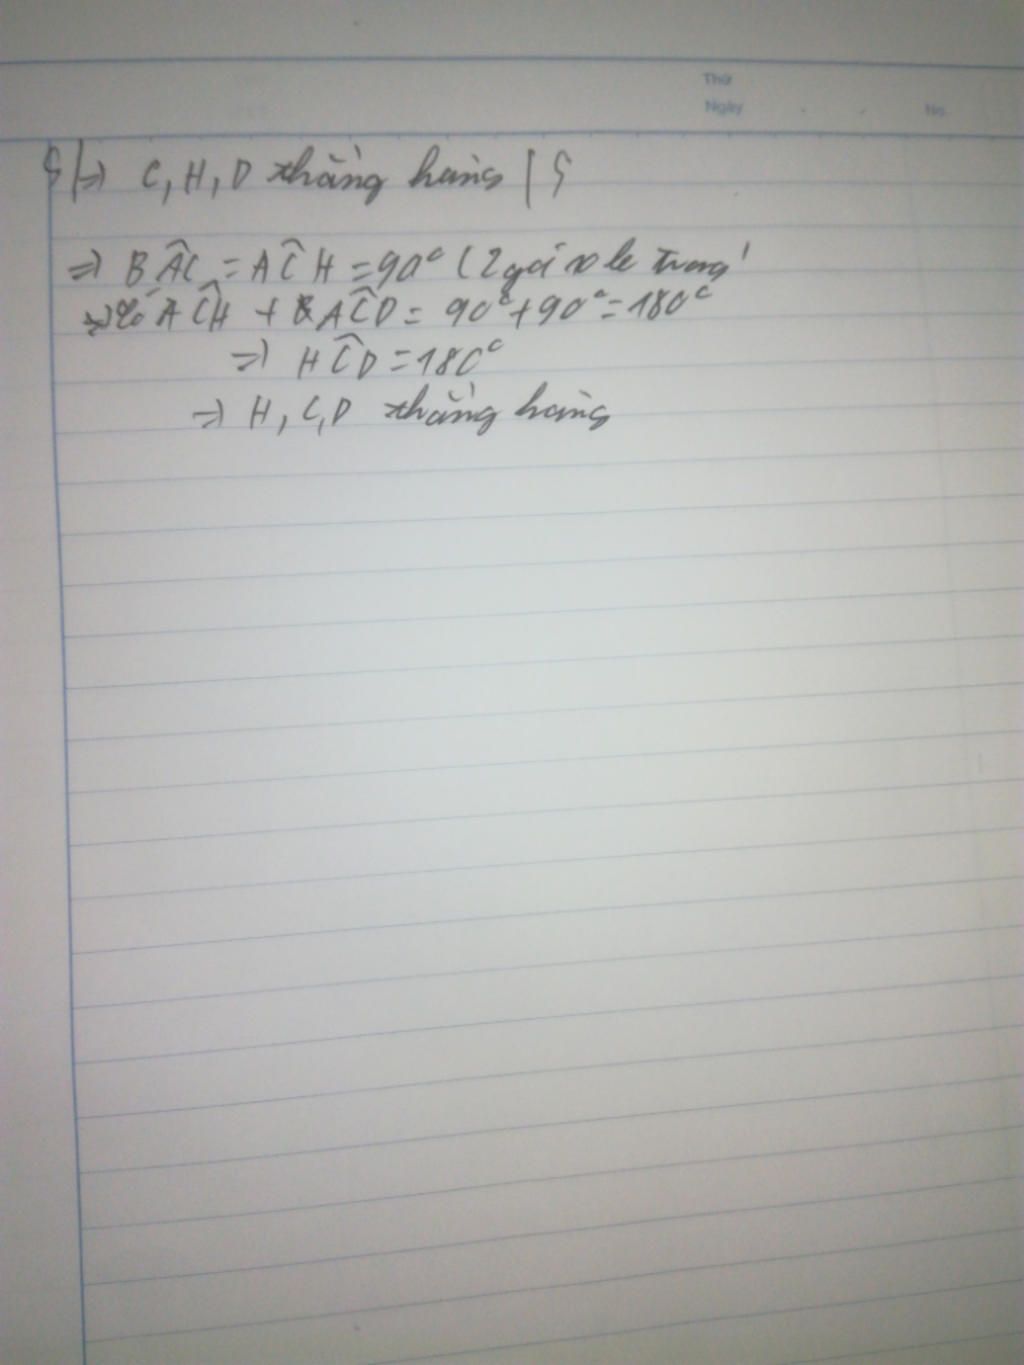 Thứ
Ngày No
=> C, H, D thẳng hàng
=> BÂC = AĈH = 90° (2 góc so le trong)
=> có AĈH + AĈD = 90° + 90° = 180°
=> HĈD = 180°
=> H, C, D thẳng hàng